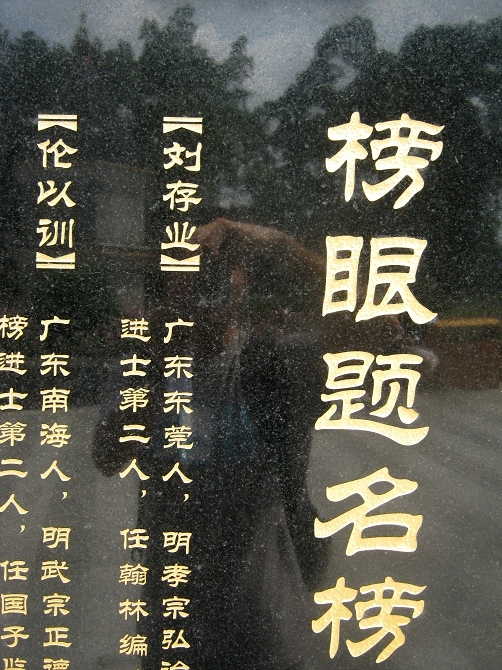 榜眼题名榜
【刘存业】
广东东莞人，明孝宗弘治
进士第二人，任翰林编
【伦以训】
广东南海人，明武宗正德
榜进士第二人，任国子监